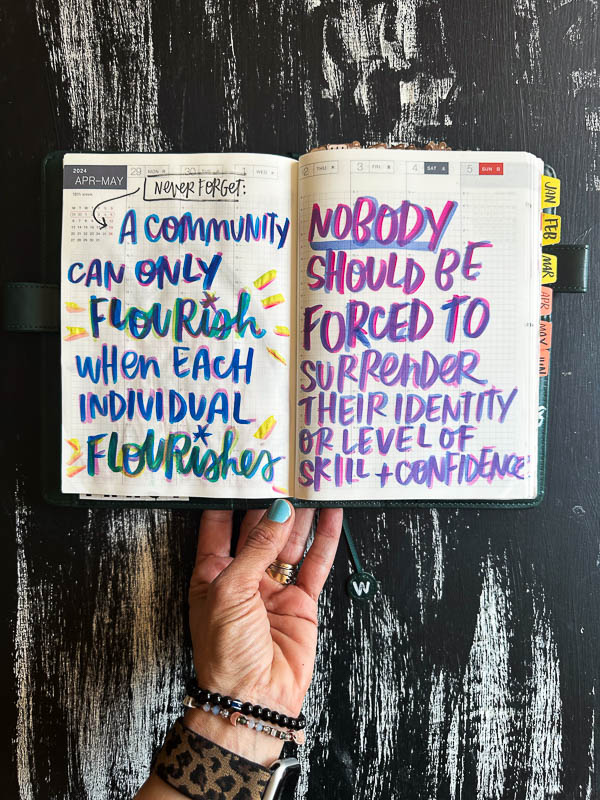 2024
APR–MAY
29 MON
30 TUE
1 WED
NEVER FORGET:
A COMMUNITY
CAN ONLY
FLOURISH
WHEN EACH
INDIVIDUAL
FLOURISHES
2 THU
3 FRI
4 SAT
5 SUN
NOBODY
SHOULD BE
FORCED TO
SURRENDER
THEIR IDENTITY
OR LEVEL OF
SKILL + CONFIDENCE
JAN
FEB
MAR
APR
MAY
JUN
W